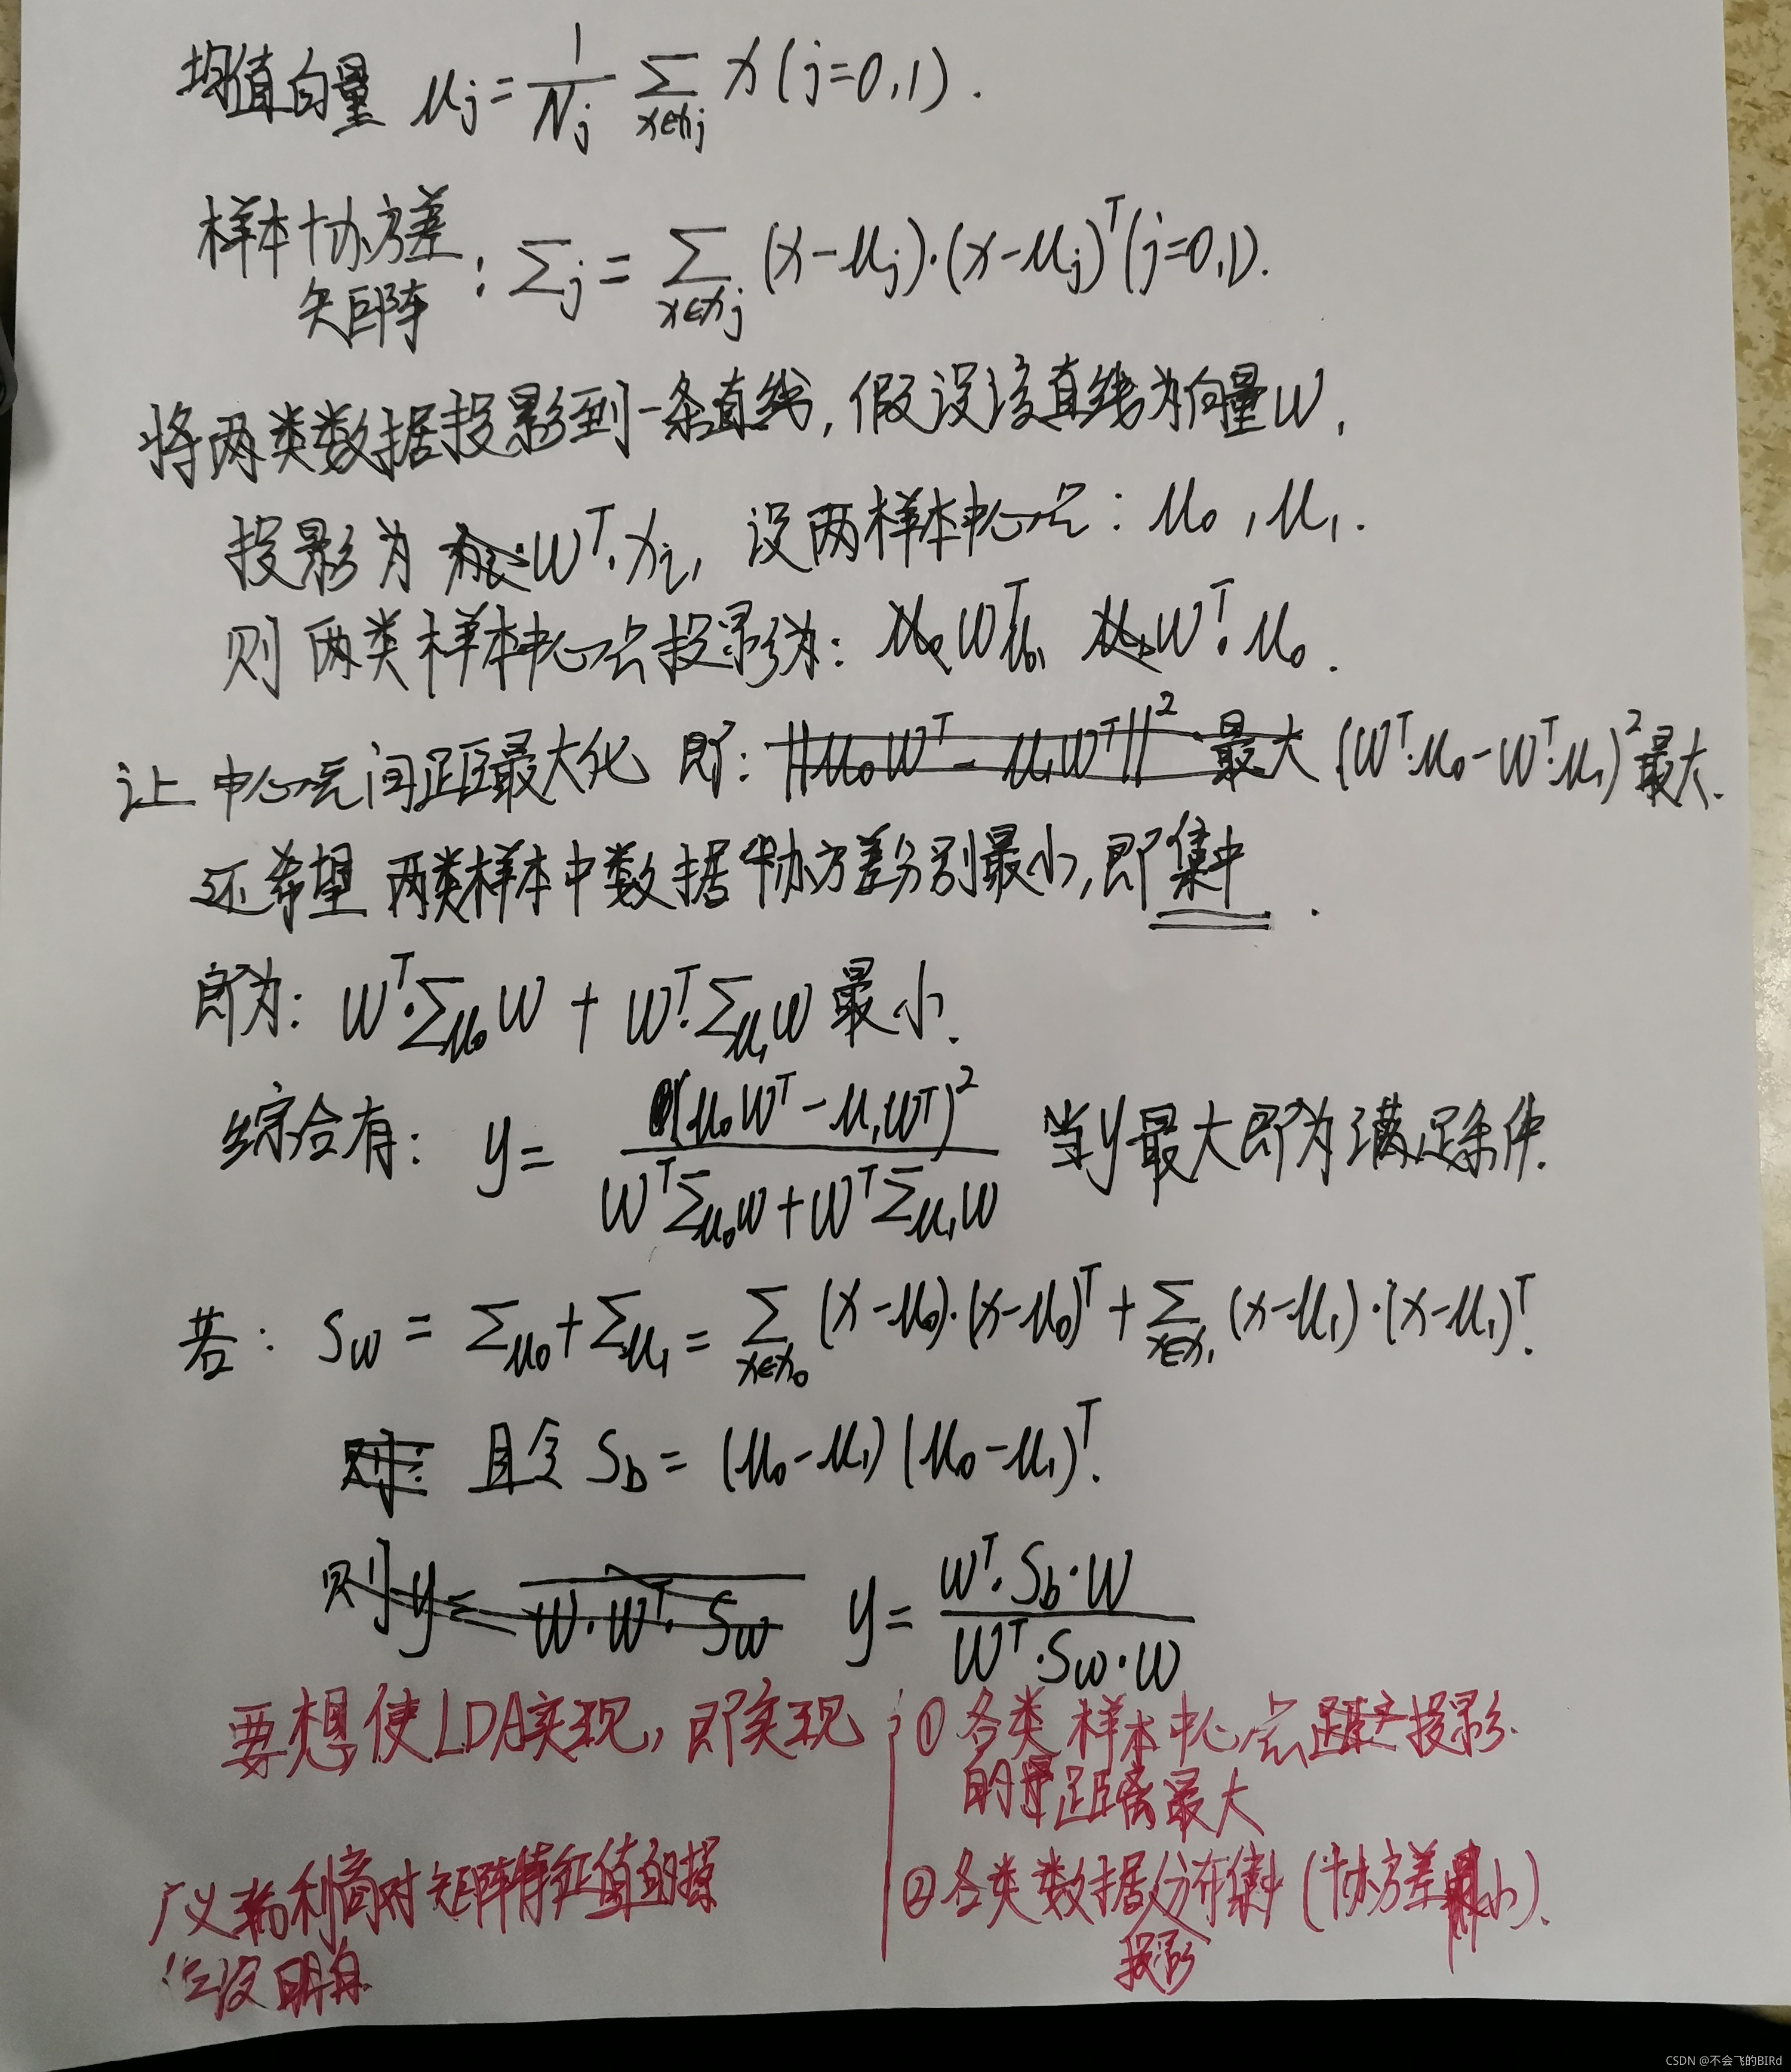 均值向量 μj = 1/Nj ∑x∈xj x (j=0,1).
样本协方差
矩阵 : Σj = ∑x∈xj (x-μj)·(x-μj)^T (j=0,1).
将两类数据投影到一条直线, 假设该直线为向量W,
投影为 W^T·xi, 设两样本中心点: μ0, μ1.
则两类样本中心点投影为: W^Tμ1 W^T·μ0.
让中心点间距最大化 即: ||μ0W^T - μ1W^T||² 最大 (W^T·μ0-W^T·μ1)²最大.
还希望两类样本中数据协方差分别最小, 即集中.
即为: W^T·Σμ0W + W^T·Σμ1W 最小.
综合有: y= (μ0W^T-μ1W^T)² / W^TΣμ0W+W^TΣμ1W 当y最大即为满足条件.
若: Sw = Σμ0+Σμ1 = ∑x∈x0 (x-μ0)·(x-μ0)^T + ∑x∈x1 (x-μ1)·(x-μ1)^T.
则: 且令 Sb = (μ0-μ1)(μ0-μ1)^T.
则y= W·W^T·Sw y= W^T·Sb·W / W^T·Sw·W
要想使LDA实现, 即实现 ① 各类样本中心点投影
的距离最大
② 各类数据分布集中 (协方差最小).
投影
广义瑞利商对矩阵特征值的
没明白.
CSDN @不会飞的BIRd